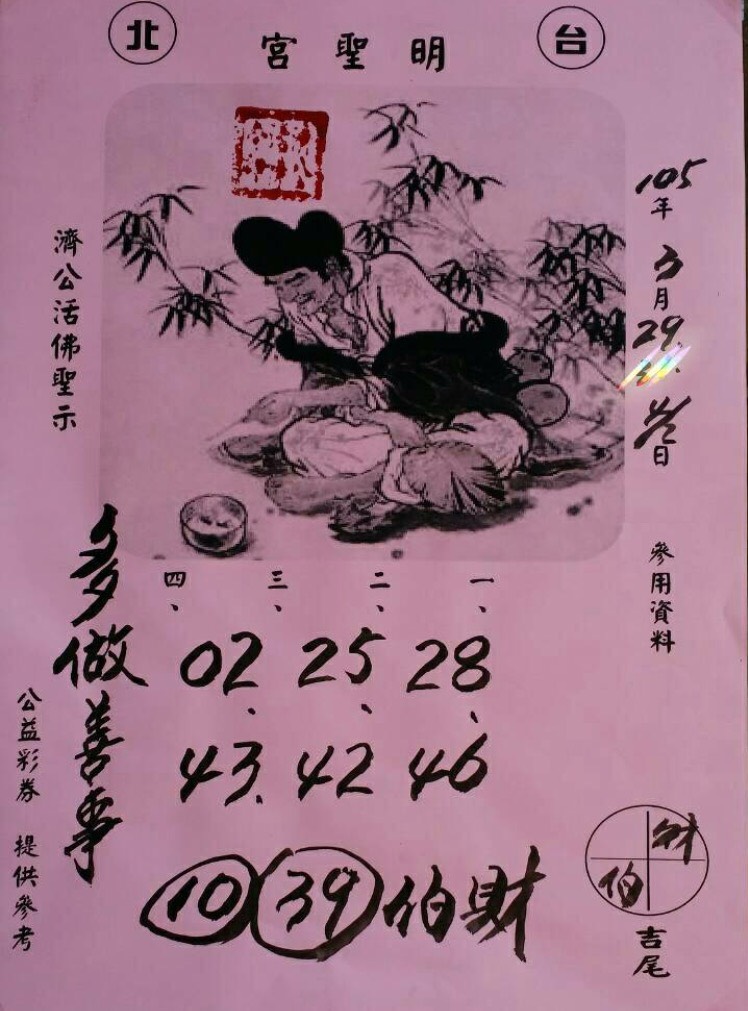 台北
明聖宮
105年3月29.31.4/2日
參用資料
濟公活佛聖示
一、 二、 三、 四、
28、 25、 02、
46 42 43.
10 39 伯財
多做善事
財
伯
吉尾
公益彩券 提供參考